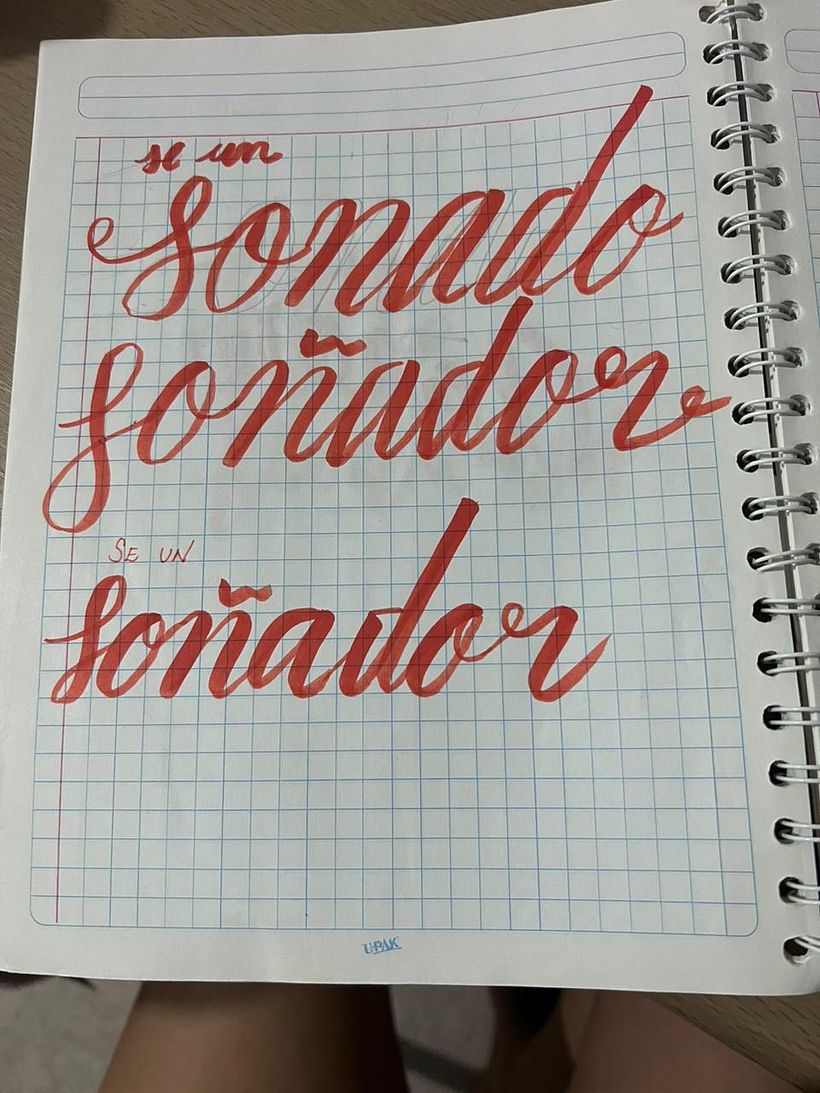 se un
sonado
soñador
SE UN
soñador
UPAK